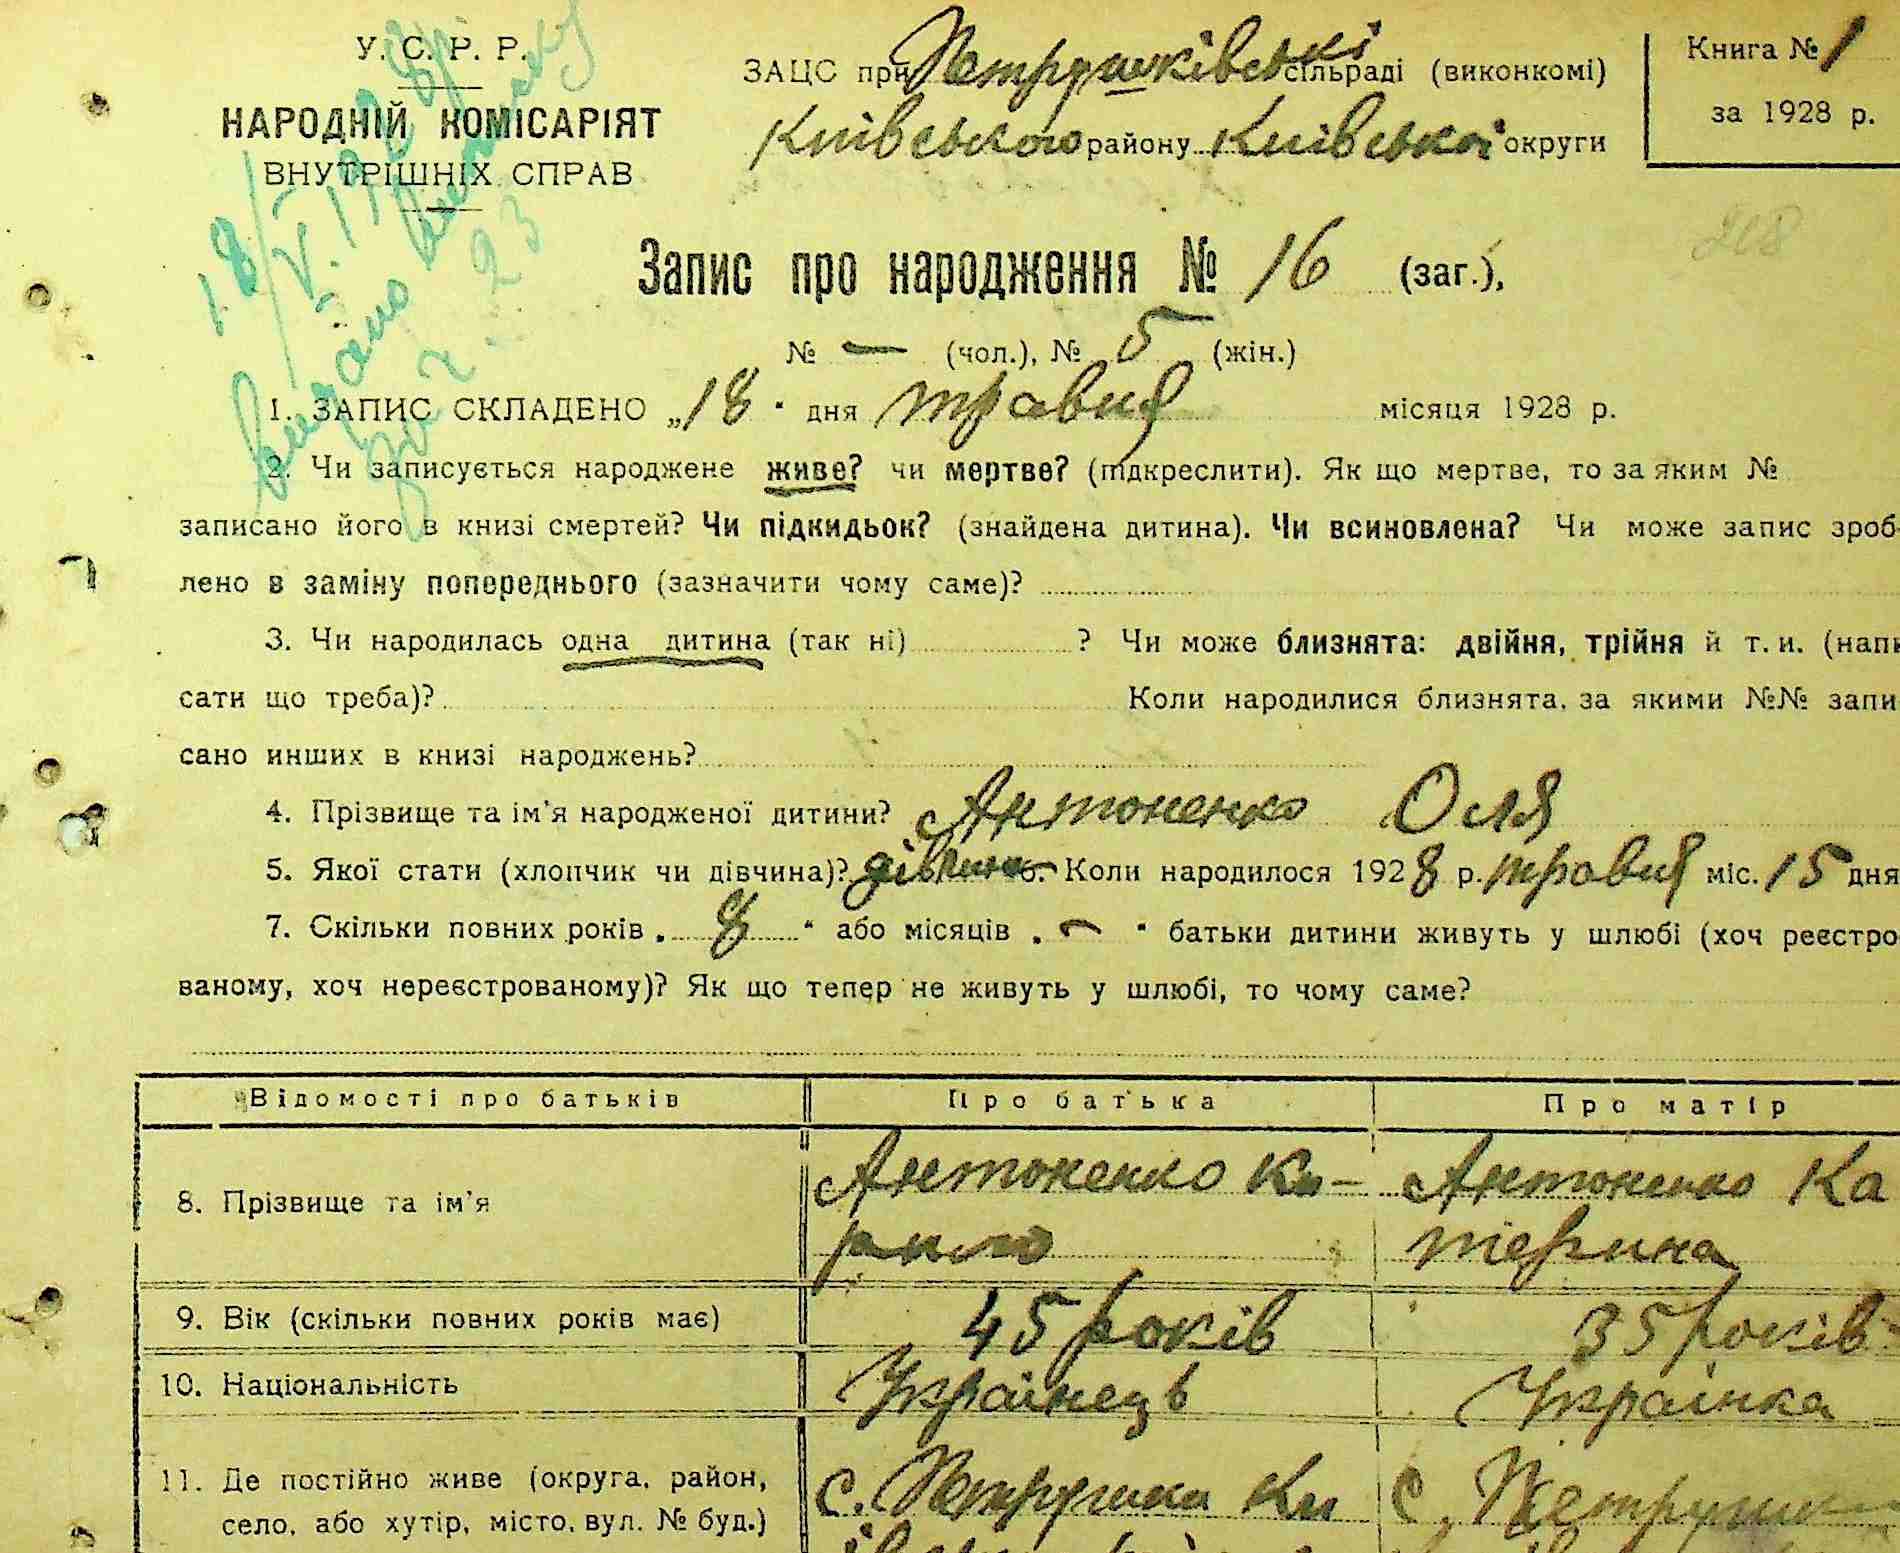 У. С. Р. Р.
НАРОДНІЙ КОМІСАРІЯТ
ВНУТРІШНІХ СПРАВ
ЗАЦС при Петрушківські сільраді (виконкомі)
Київського району Київської округи
Книга № 1
за 1928 р.
18/V.1928
видано
за № 23
218
Запис про народження № 16 (заг.),
№ — (чол.), № 5 (жін.)
1. ЗАПИС СКЛАДЕНО „18" дня травня місяця 1928 р.
2. Чи записується народжене живе? чи мертве? (підкреслити). Як що мертве, то за яким №
записано його в книзі смертей? Чи підкидьок? (знайдена дитина). Чи всиновлена? Чи може запис зроб-
лено в заміну попереднього (зазначити чому саме)?
3. Чи народилась одна дитина (так ні) ? Чи може близнята: двійня, трійня й т. и. (напи
сати що треба)? Коли народилися близнята, за якими №№ запи-
сано инших в книзі народжень?
4. Прізвище та ім'я народженої дитини? Антоненко Оля
5. Якої стати (хлопчик чи дівчина)? дівчина 6. Коли народилося 1928 р. травня міс. 15 дня
7. Скільки повних років „ 8 " або місяців „ — " батьки дитини живуть у шлюбі (хоч реєстро-
ваному, хоч нереєстрованому)? Як що тепер не живуть у шлюбі, то чому саме?
Відомості про батьків Про батька Про матір
8. Прізвище та ім'я Антоненко Ки- Антоненко Ка
рило терина
9. Вік (скільки повних років має) 45 років 35 років
10. Національність Українець Українка
11. Де постійно живе (округа, район, с. Петрушки Ки с. Петрушки
село, або хутір, місто, вул. № буд.)